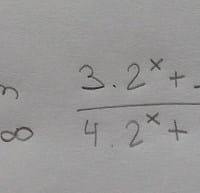 3 . 2^x +
4 . 2^x +
∞